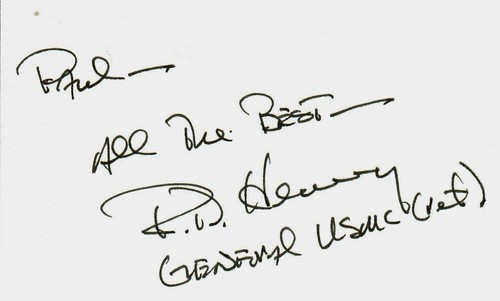 Paul—
All The Best—
R.D. Hearney
General USMC (ret)